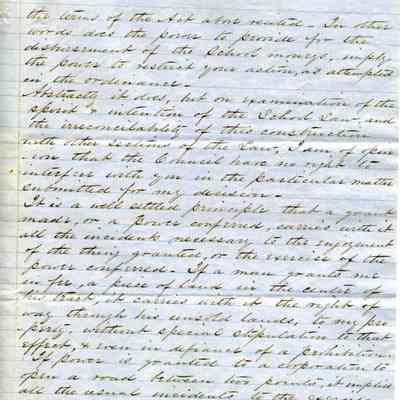 the terms of the Act above recited - In other
words does the power to provide for the
disbursement of the School moneys, imply
the power to restrict your action, as attempted
in the ordinance -
Abstractly it does, but on examination of the
spirit & intention of the School Law and
the irreconcilability of this construction
with other sections of the Law, I am of opin
-ion that the Council have no right to
interfere with you in the particular matter
submitted for my decision -
It is a well settled principle that a grant
made, or a power conferred, carries with it
all the incidents necessary to the enjoyment
of the thing granted, or the exercise of the
power conferred - If a man grants me
in fee, a piece of land in the centre of
his tract, it carries with it the right of
way through his unsold lands, to my pro
perty, without special stipulation to that
effect, & even in defiance of a prohibition
If power is granted to a corporation to
open a road between two points, it implies
all the usual incidents to the exercise